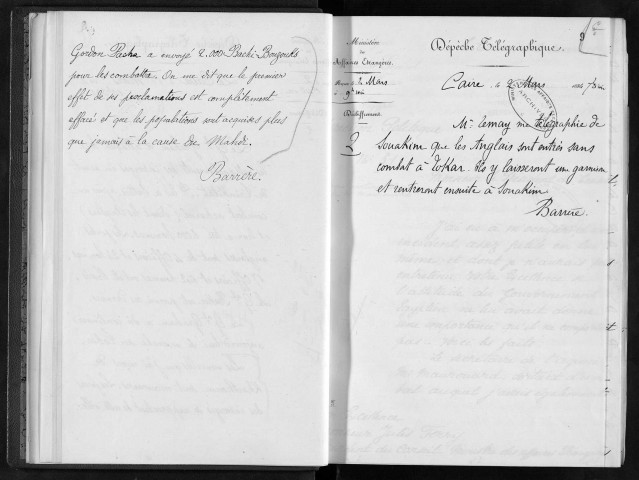 Gordon Pasha a envoyé 2.000 Bachi-Bouzouks
pour les combattre. On me dit que le premier
effet de ses proclamations est complètement
effacé et que les populations sont acquises plus
que jamais à la cause du Mahdi.
Barrère.
Ministère
des
Affaires Etrangères.
Mars
Déchiffrement.
2
Dépêche Télégraphique.
Caire, le 2 Mars
Mr. Lemay me télégraphie de
Souakim que les Anglais sont entrés sans
combat à Tokar. Ils y laisseront une garnison
et rentreront ensuite à Souakim.
Barrère.